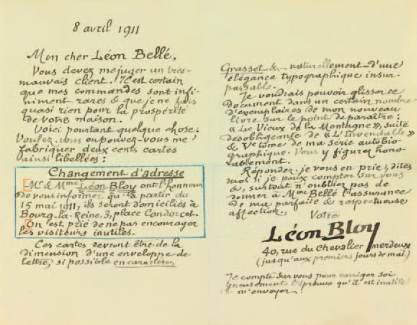 8 avril 1911
Mon cher Léon Bellé,
Vous devez me juger un très-
mauvais client. Il est certain
que mes commandes sont infi-
niment rares & que je ne fais
quasi rien pour la prospérité
de votre maison.
Voici pourtant quelque chose.
Voulez-vous ou pouvez-vous me
fabriquer deux cents cartes
ainsi libellées:
Changement d'adresse
Mr & Mme Léon Bloy ont l'honneur
de vous informer qu'à partir du
15 mai 1911, ils seront domiciliés à
Bourg-la-Reine, 3, place Condorcet.
On est prié de ne pas encourager
les visiteurs inutiles.
Ces cartes devront être de la
dimension d'une enveloppe de
lettre, si possible en caractères
Grasset & naturellement d'une
élégance typographique insur-
passable.
Je voudrais pouvoir glisser ce
document dans un certain nombre
d'exemplaires de mon nouveau
livre sur le point de paraître:
« Le Vieux de la Montagne », suite
désobligeante de « L'Invendable »
& Ve tome de ma série autobio-
graphique. Vous y figurez hono-
rablement.
Répondez, je vous en prie, dites
moi si je puis compter sur vous
&, surtout n'oubliez pas de
donner à Mme Bellé l'assurance
de ma parfaite & respectueuse
affection.
Votre
Léon Bloy
40, rue du Chevalier merdeux
(jusqu'aux premiers jours de mai)
Je compte sur vous pour corriger soi-
gneusement l'épreuve qu'il est inutile
m'envoyer.